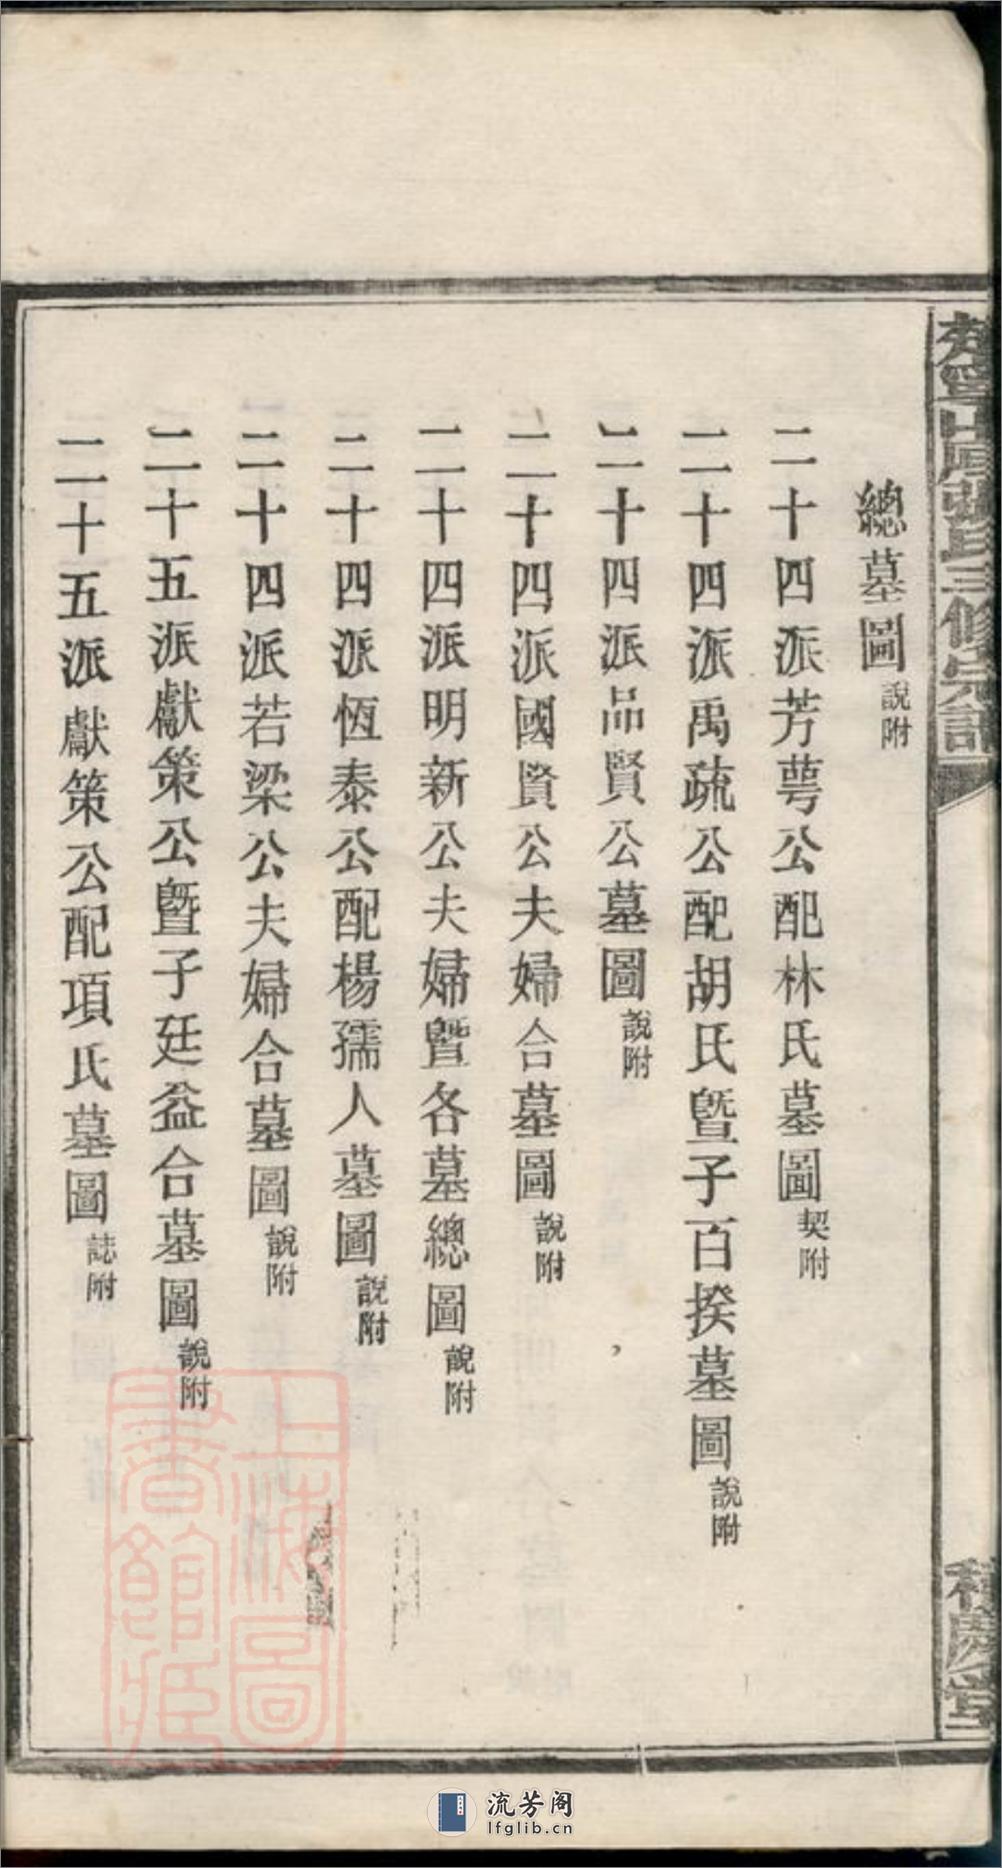 總墓圖說附
二十四派芳萼公配林氏墓圖契附
二十四派禹疏公配胡氏暨子百揆墓圖說附
二十四派品賢公墓圖說附
二十四派國賢公夫婦合墓圖說附
二十四派明新公夫婦暨各墓總圖說附
二十四派恆泰公配楊孺人墓圖說附
二十四派若梁公夫婦合墓圖說附
二十五派獻策公暨子廷益合墓圖說附
二十五派獻策公配項氏墓圖誌附
上海圖書館藏
流芳阁
lfglib.cn